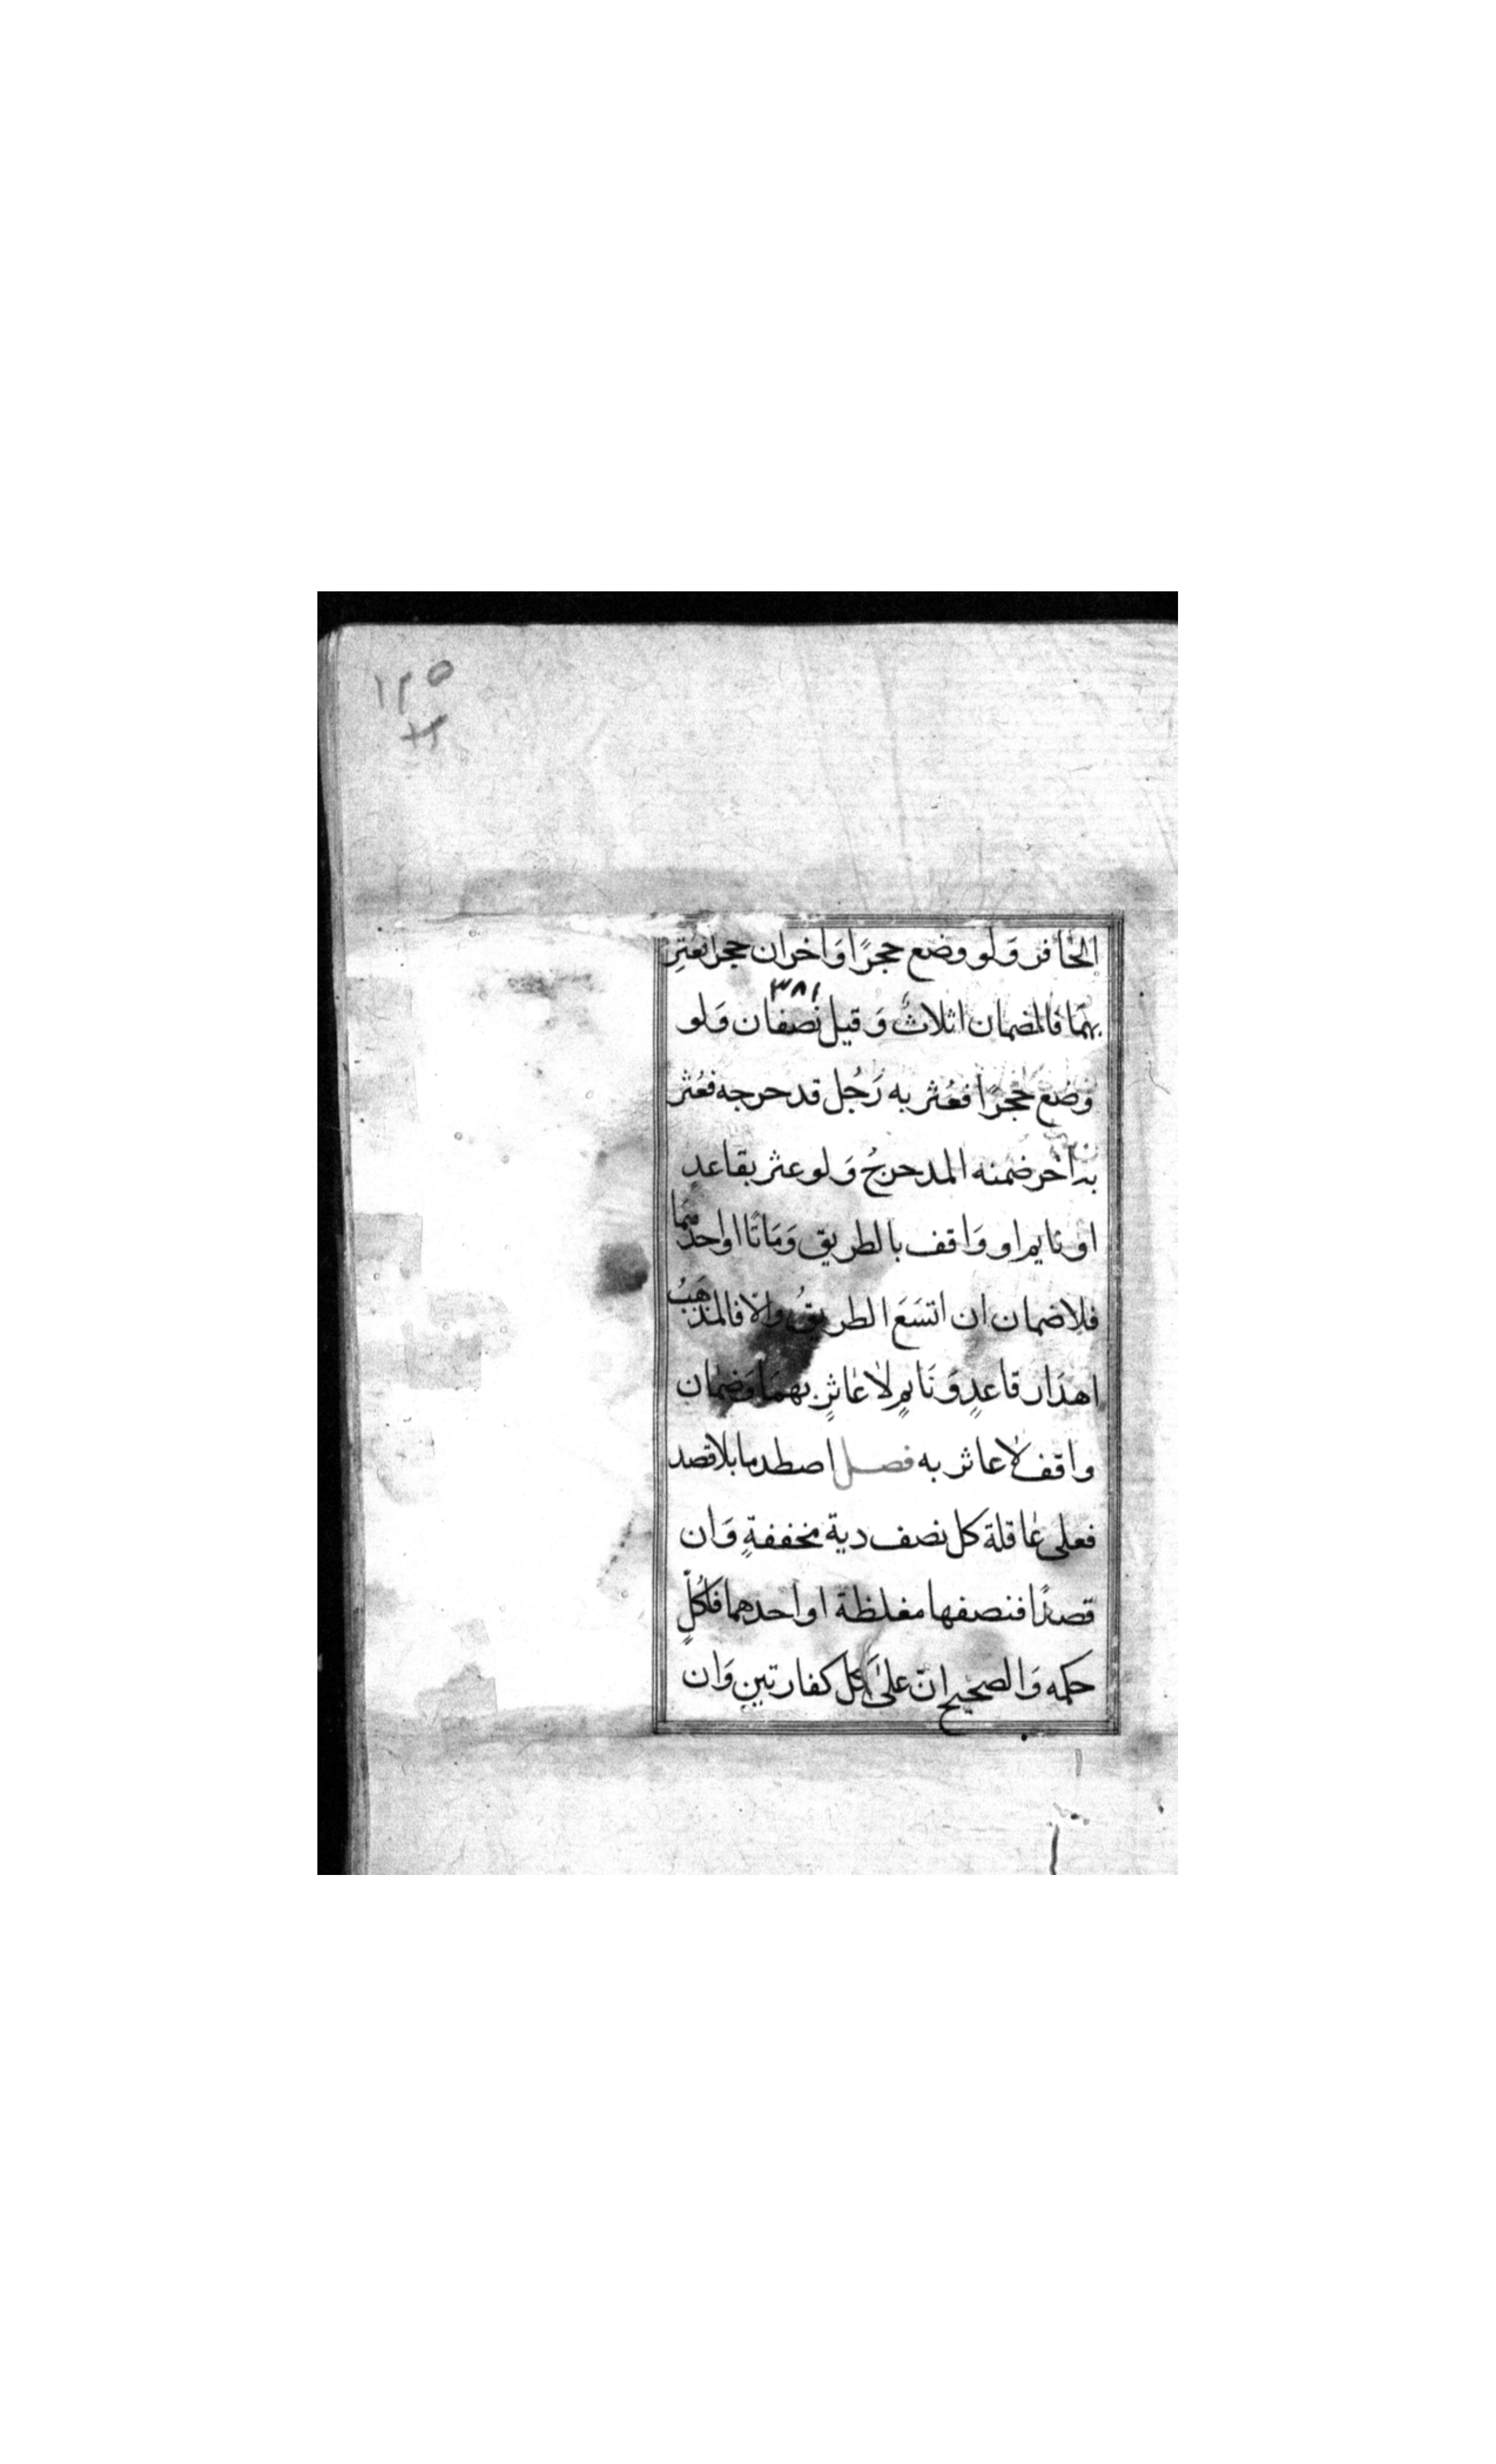 ١٢٥
الحافر وَلو وضع حجرًا وَاخران حجرا فعثر
٣٨١
بهمَا فالضمان اثلاثٌ وَ قيل نصفان وَلو
وَضَعَ حَجرًا فعُثر به رَجُل فدحرجه فعُثر
به آخر ضمنه المدحرجُ وَ لو عثر بقاعدٍ
او نايم او وَاقف بالطريق وَمَاتَا او احدهما
فلاضمان ان اتسَعَ الطريقُ والا فالمذهَبُ
اهدَار قاعدٍ وَ نَايمٍ لا عَاثرٍ بهمَا وَضمان
واقف لا عاثر به فصل اصطدما بلا قصد
فعلى عَاقلة كل نصف دية مخففةٍ وَان
قصدًا فنصفها مغلظة او احدهما فلكُلٍّ
حكمه وَالصحيح انّ علىَ كل كفارتين وَان